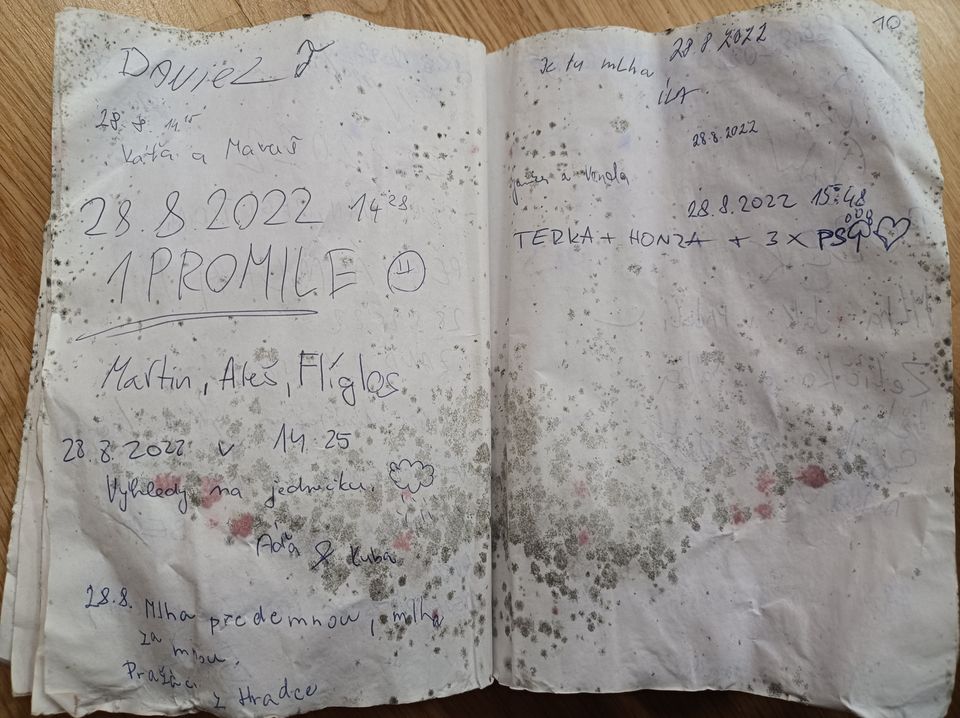 28.8. 14 15
Káťa a Maruš
28.8.2022 14 28
1 PROMILE
Martin, Aleš, Flíglos
28 8 2022 v 14 25
Výhledy na jedničku.
& Kuba
28.8. Mlha předemnou, mlha
za mnou.
Pražáci z Hradce
10
28 8 2022
Je tu mlha
28.8.2022
a Vonda
28.8.2022 15:48
TERKA + HONZA + 3 x PSI